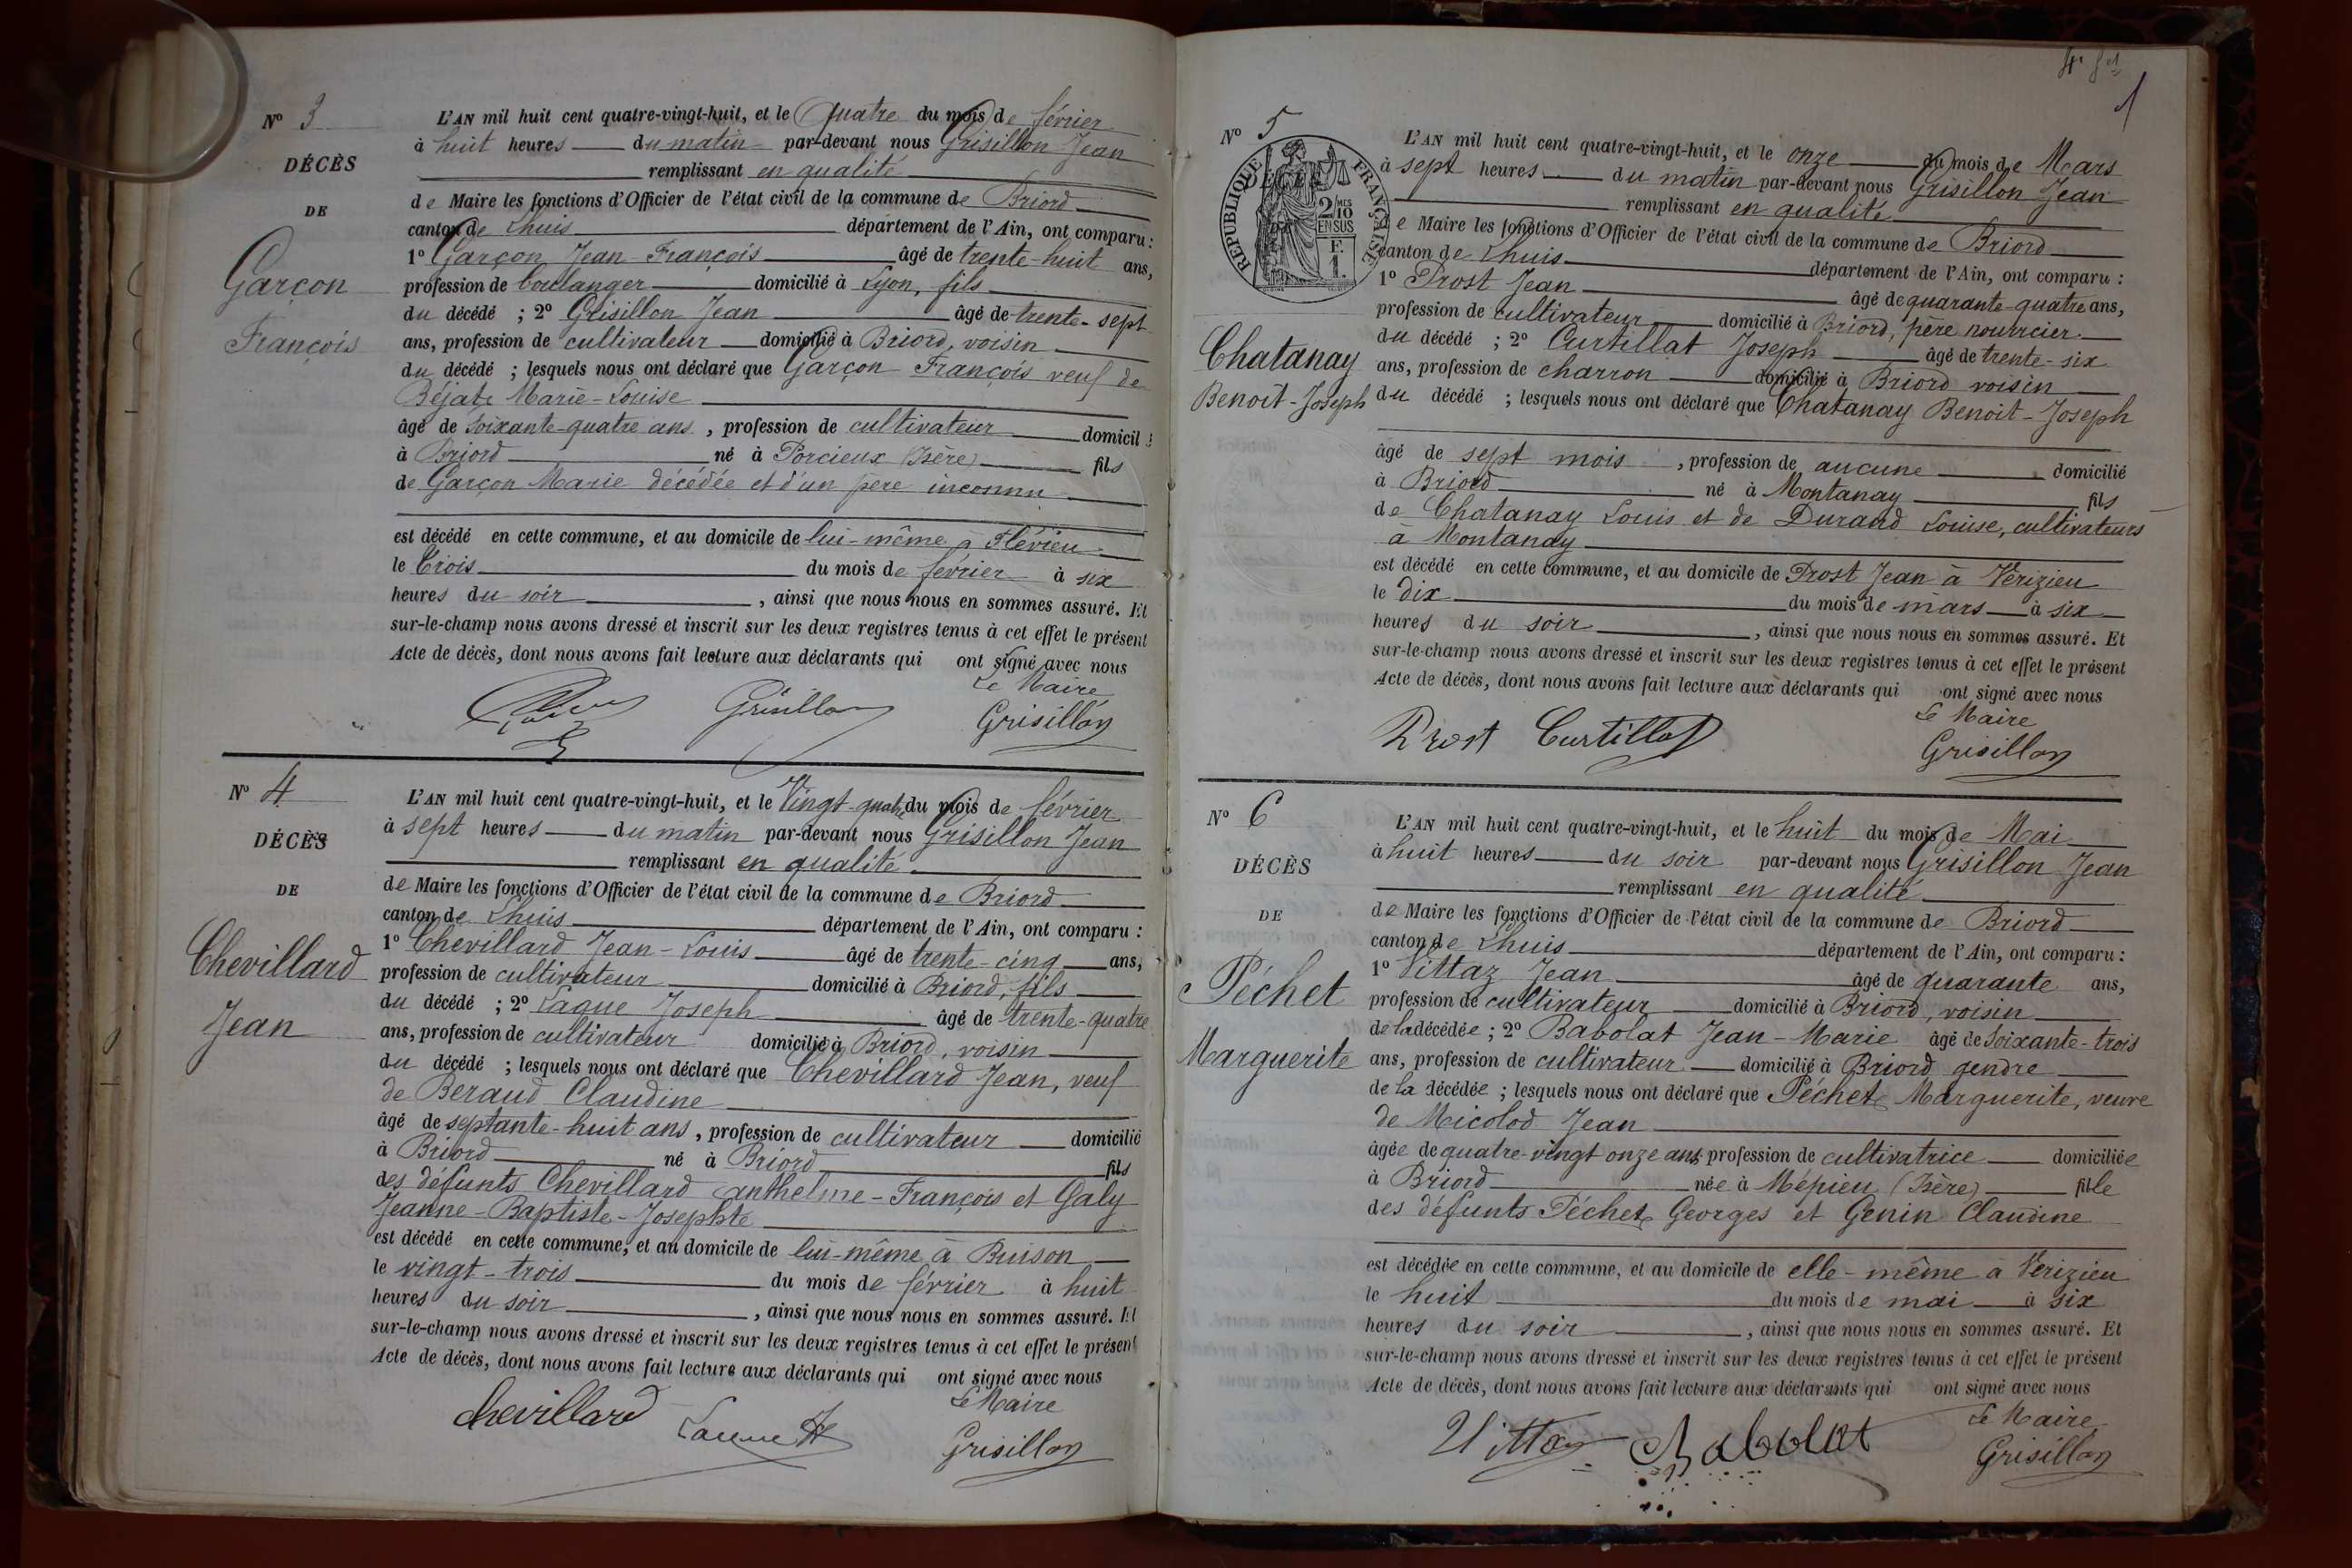 Nº 3
DÉCÈS
DE
Garçon
François
L'AN mil huit cent quatre-vingt-huit, et le Quatre du mois de février
à huit heures du matin par-devant nous Grisillon Jean
remplissant en qualité
de Maire les fonctions d'Officier de l'état civil de la commune de Briord
canton de Lhuis département de l'Ain, ont comparu :
1º Garçon Jean-François âgé de trente-huit ans,
profession de boulanger domicilié à Lyon, fils
du décédé ; 2º Grisillon Jean âgé de trente-sept
ans, profession de cultivateur domicilié à Briord, voisin
du décédé ; lesquels nous ont déclaré que Garçon François veuf de
Béjat Marie-Louise
âgé de soixante-quatre ans, profession de cultivateur domicilié
à Briord né à Porcieux (Isère) fils
de Garçon Marie décédée et d'un père inconnu
est décédé en cette commune, et au domicile de lui-même à Flévieu
le trois du mois de février à six
heures du soir, ainsi que nous nous en sommes assuré. Et
sur-le-champ nous avons dressé et inscrit sur les deux registres tenus à cet effet le présent
Acte de décès, dont nous avons fait lecture aux déclarants qui ont signé avec nous
Le Maire
Grisillon Grisillon
Nº 4
DÉCÈS
DE
Chevillard
Jean
L'AN mil huit cent quatre-vingt-huit, et le Vingt-quatre du mois de février
à sept heures du matin par-devant nous Grisillon Jean
remplissant en qualité
de Maire les fonctions d'Officier de l'état civil de la commune de Briord
canton de Lhuis département de l'Ain, ont comparu :
1º Chevillard Jean-Louis âgé de trente-cinq ans,
profession de cultivateur domicilié à Briord, fils
du décédé ; 2º Laque Joseph âgé de trente-quatre
ans, profession de cultivateur domicilié à Briord, voisin
du décédé ; lesquels nous ont déclaré que Chevillard Jean, veuf
de Beraud Claudine
âgé de septante-huit ans, profession de cultivateur domicilié
à Briord né à Briord fils
des défunts Chevillard Anthelme-François et Galy
Jeanne-Baptiste-Josephte
est décédé en cette commune, et au domicile de lui-même à Buison
le vingt-trois du mois de février à huit
heures du soir, ainsi que nous nous en sommes assuré. Et
sur-le-champ nous avons dressé et inscrit sur les deux registres tenus à cet effet le présent
Acte de décès, dont nous avons fait lecture aux déclarants qui ont signé avec nous
Le Maire
Chevillard Grisillon
Nº 5
DÉCÈS
RÉPUBLIQUE FRANÇAISE
2/10
EN SUS
F.
1.
Chatanay
Benoît-Joseph
L'AN mil huit cent quatre-vingt-huit, et le onze du mois de Mars
à sept heures du matin par-devant nous Grisillon Jean
remplissant en qualité
de Maire les fonctions d'Officier de l'état civil de la commune de Briord
canton de Lhuis département de l'Ain, ont comparu :
1º Prost Jean âgé de quarante-quatre ans,
profession de cultivateur domicilié à Briord, père nourricier
du décédé ; 2º Curtillat Joseph âgé de trente-six
ans, profession de charron domicilié à Briord voisin
du décédé ; lesquels nous ont déclaré que Chatanay Benoît-Joseph
âgé de sept mois, profession de aucune domicilié
à Briord né à Montanay fils
de Chatanay Louis et de Durand Louise, cultivateurs
à Montanay
est décédé en cette commune, et au domicile de Prost Jean à Vérizieu
le dix du mois de mars à six
heures du soir, ainsi que nous nous en sommes assuré. Et
sur-le-champ nous avons dressé et inscrit sur les deux registres tenus à cet effet le présent
Acte de décès, dont nous avons fait lecture aux déclarants qui ont signé avec nous
Le Maire
Prost Curtillat Grisillon
Nº 6
DÉCÈS
DE
Péchet
Marguerite
L'AN mil huit cent quatre-vingt-huit, et le huit du mois de Mai
à huit heures du soir par-devant nous Grisillon Jean
remplissant en qualité
de Maire les fonctions d'Officier de l'état civil de la commune de Briord
canton de Lhuis département de l'Ain, ont comparu :
1º Vittaz Jean âgé de quarante ans,
profession de cultivateur domicilié à Briord, voisin
de la décédée ; 2º Babolat Jean-Marie âgé de soixante-trois
ans, profession de cultivateur domicilié à Briord gendre
de la décédée ; lesquels nous ont déclaré que Péchet Marguerite, veuve
de Micolod Jean
âgée de quatre-vingt onze ans profession de cultivatrice domiciliée
à Briord née à Mépieu (Isère) fille
des défunts Péchet Georges et Genin Claudine
est décédée en cette commune, et au domicile de elle-même à Verizieu
le huit du mois de mai à six
heures du soir, ainsi que nous nous en sommes assuré. Et
sur-le-champ nous avons dressé et inscrit sur les deux registres tenus à cet effet le présent
Acte de décès, dont nous avons fait lecture aux déclarants qui ont signé avec nous
Le Maire
Vittaz Babolat Grisillon